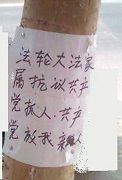 法轮大法家
属抗议共产
党抓人.共产
党放我亲人